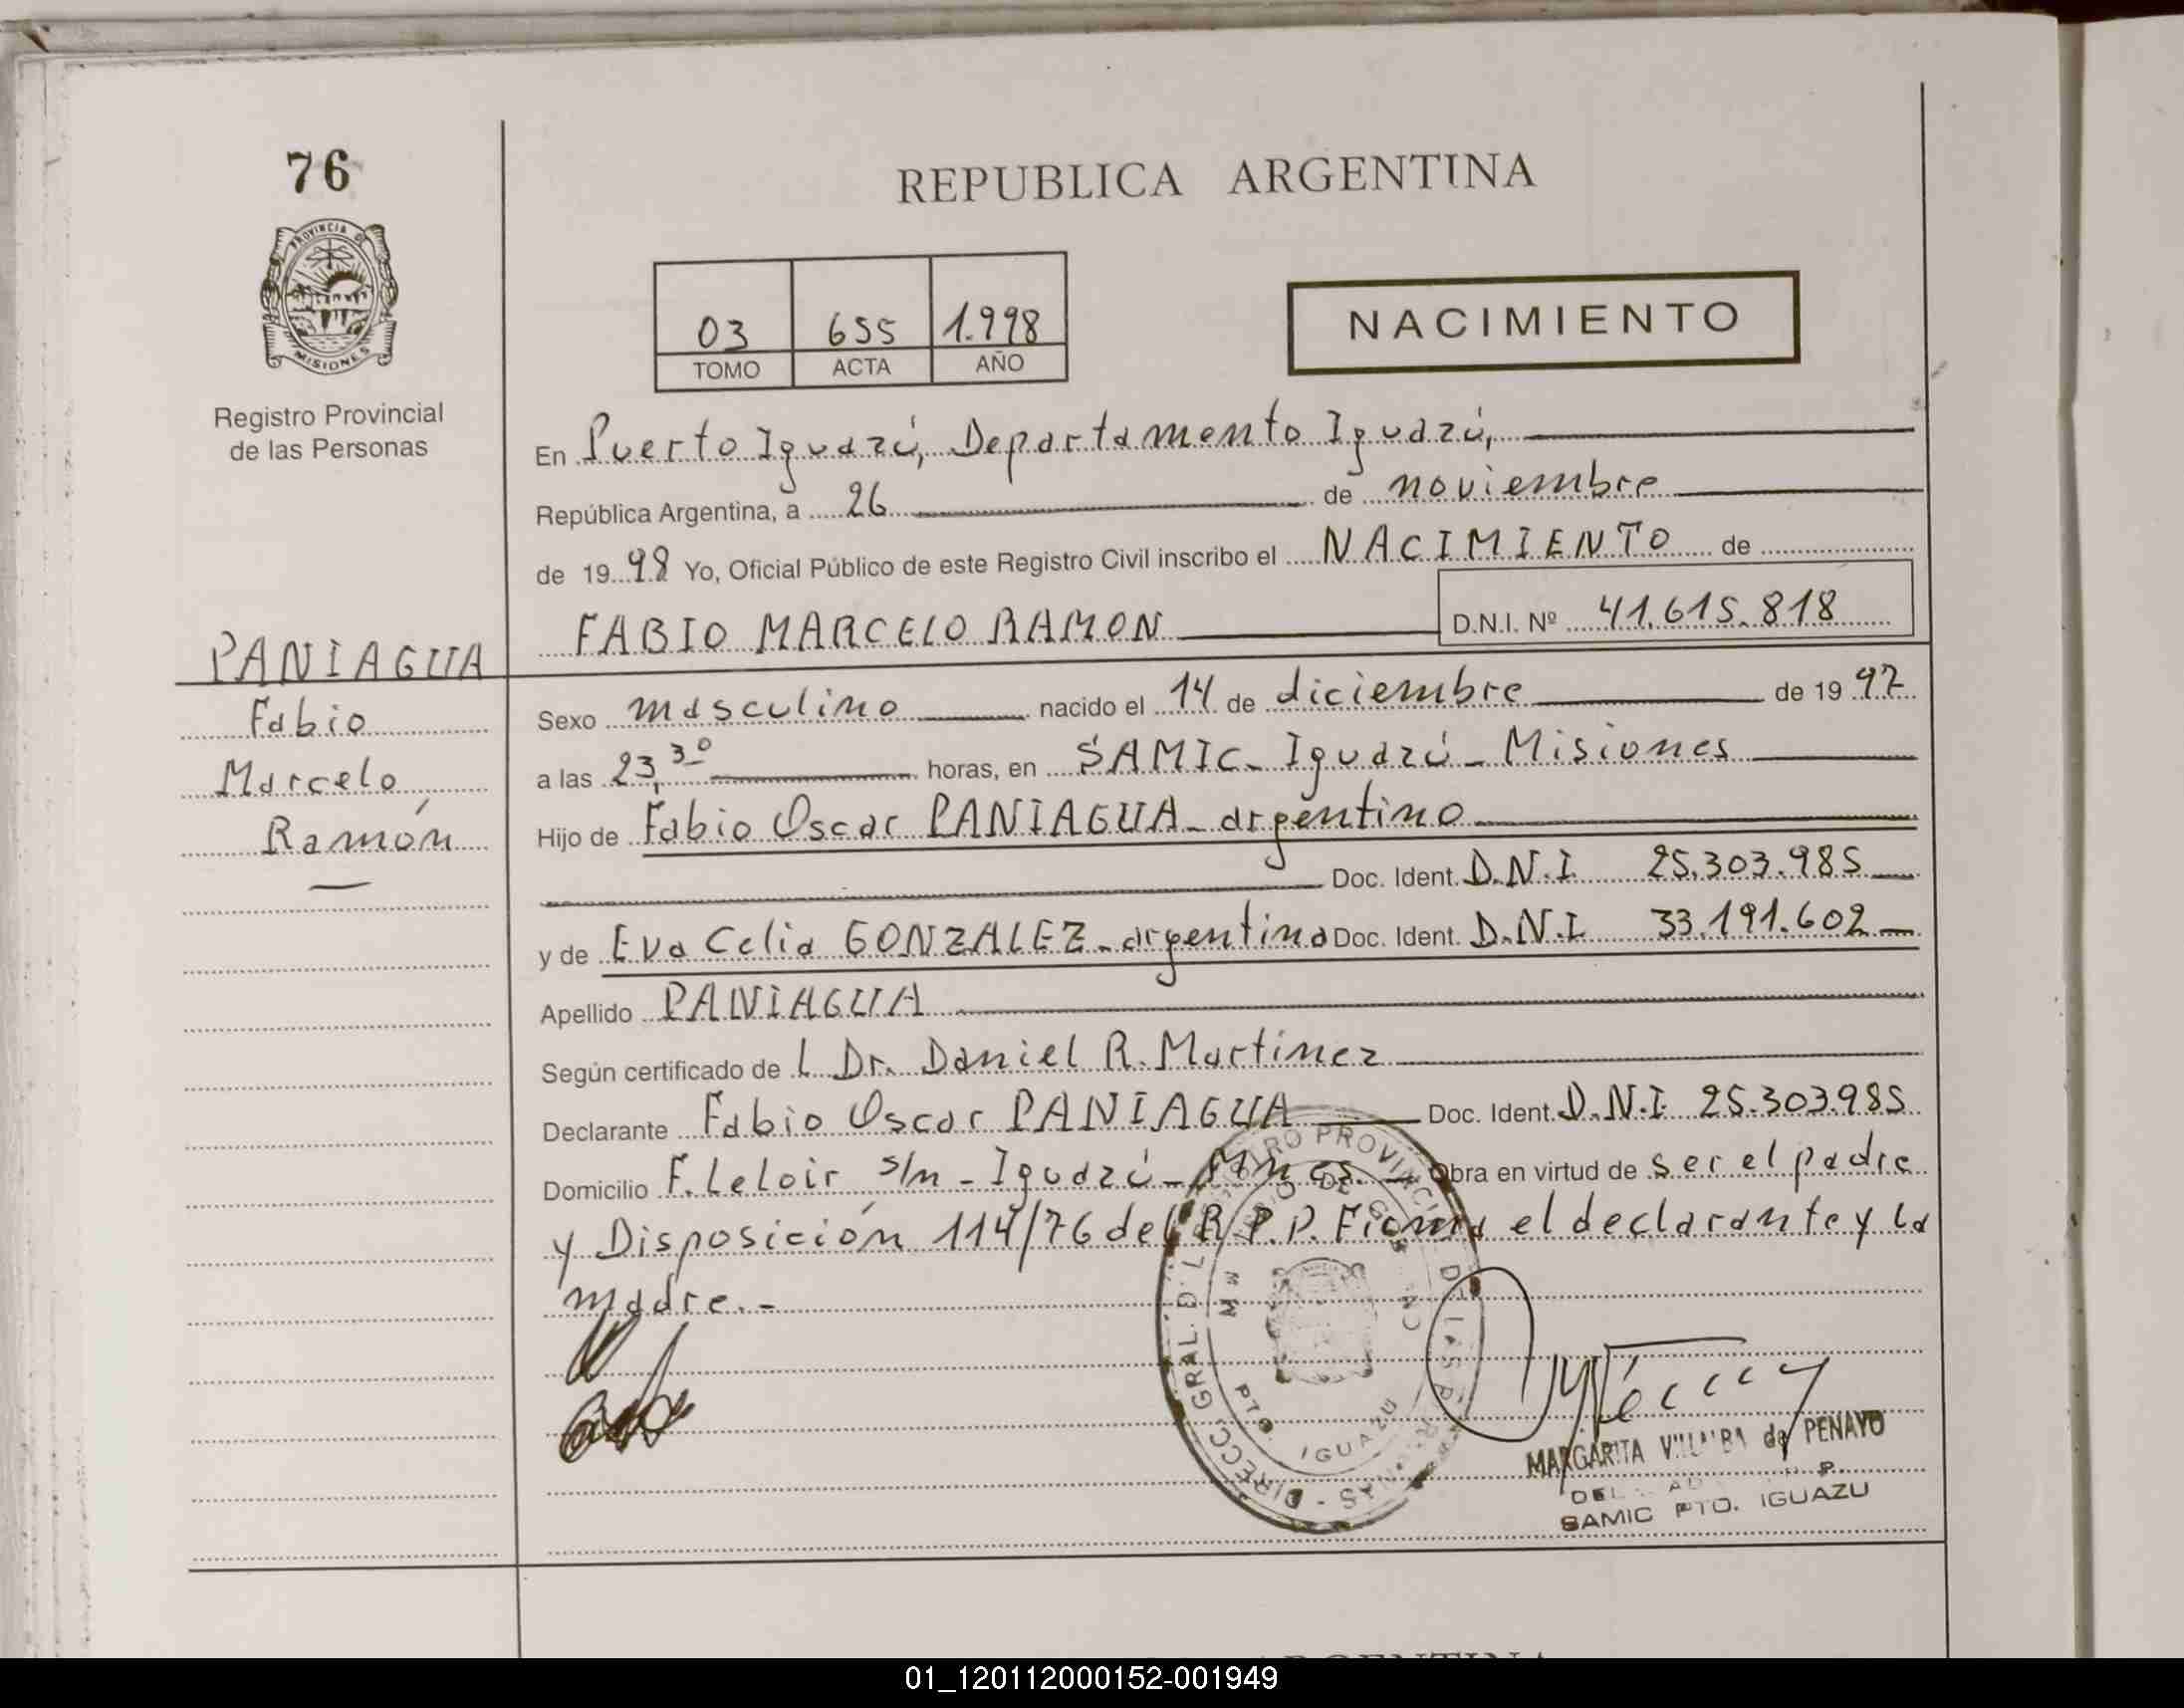 76
REPUBLICA ARGENTINA
PROVINCIA DE MISIONES
Registro Provincial
de las Personas
03 655 1.998
TOMO ACTA AÑO
NACIMIENTO
En Puerto Iguazú, Departamento Iguazú,
República Argentina, a 26 de noviembre
de 1998 Yo, Oficial Público de este Registro Civil inscribo el NACIMIENTO de
FABIO MARCELO RAMON D.N.I. Nº 41.615.818
PANIAGUA
Fabio
Marcelo
Ramón
Sexo masculino nacido el 14 de diciembre de 1997
a las 23,30 horas, en SAMIC - Iguazú - Misiones
Hijo de Fabio Oscar PANIAGUA - argentino
Doc. Ident. D.N.I. 25.303.985
y de Eva Celia GONZALEZ - argentina Doc. Ident. D.N.I. 33.191.602
Apellido PANIAGUA
Según certificado de l Dr. Daniel R. Martinez
Declarante Fabio Oscar PANIAGUA Doc. Ident. D.N.I. 25.303.985
Domicilio F. Leloir s/n - Iguazú - Mnes. Obra en virtud de ser el padre
y Disposición 114/76 del R.P.P. Firma el declarante y la
madre.-
DIRECC. GRAL. DEL REGISTRO PROVINCIAL DE LAS PERSONAS
PTO. IGUAZU
MARGARITA VILLALBA de PENAYO
SAMIC PTO. IGUAZU
ARGENTINA
01_120112000152-001949